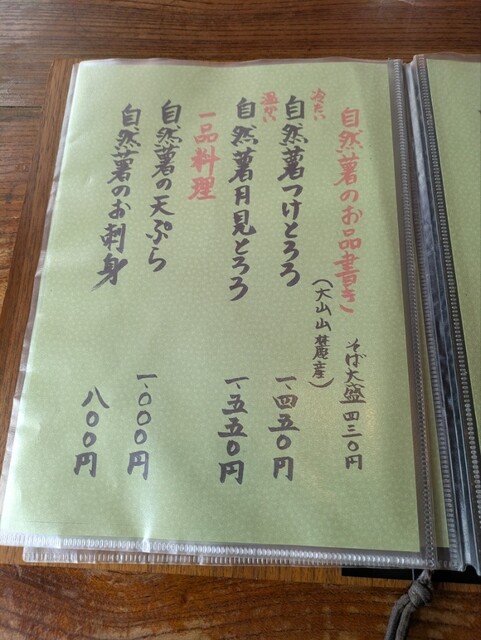 自然薯のお品書き
(大山山麓産)
そば大盛 四三〇円
冷たい
自然薯つけとろろ 一、四五〇円
温かい
自然薯月見とろろ 一、五五〇円
一品料理
自然薯の天ぷら 一、〇〇〇円
自然薯のお刺身 八〇〇円